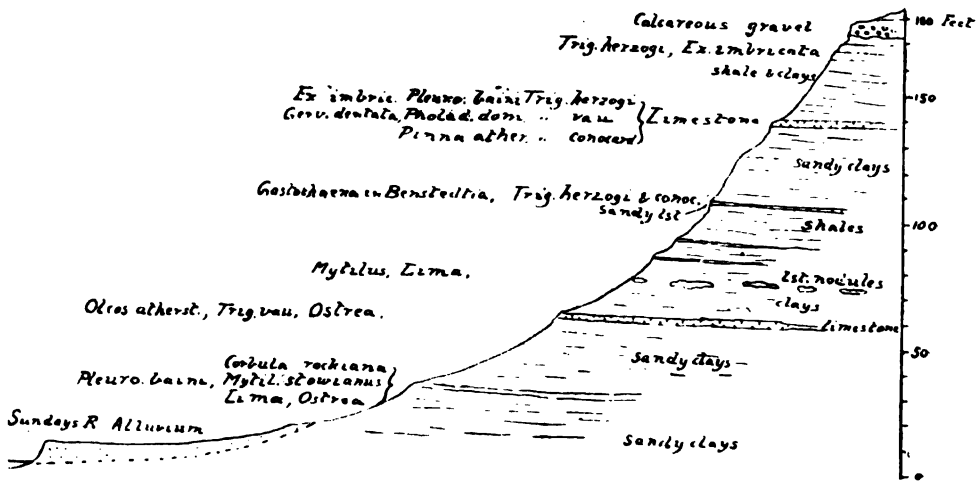 Calcareous gravel
Trig. herzogi, Ex. imbricata
shale & clays
Ex imbric. Pleuro. baini Trig. herzogi
Gerv. dentata, Pholad. dom. " vau
Pinna ather. " conocard
Limestone
Sandy clays
Gastochaena in Benstedtia, Trig. herzogi & conoc.
Sandy lst
Shales
Mytilus, Lima.
lst. nodules
clays
Olcos atherst., Trig. vau, Ostrea.
limestone
Sandy clays
Corbula rockiana
Pleuro. baini, Mytil. stowianus
Lima, Ostrea
Sundays R Alluvium
Sandy clays
Feet
150
100
50
0